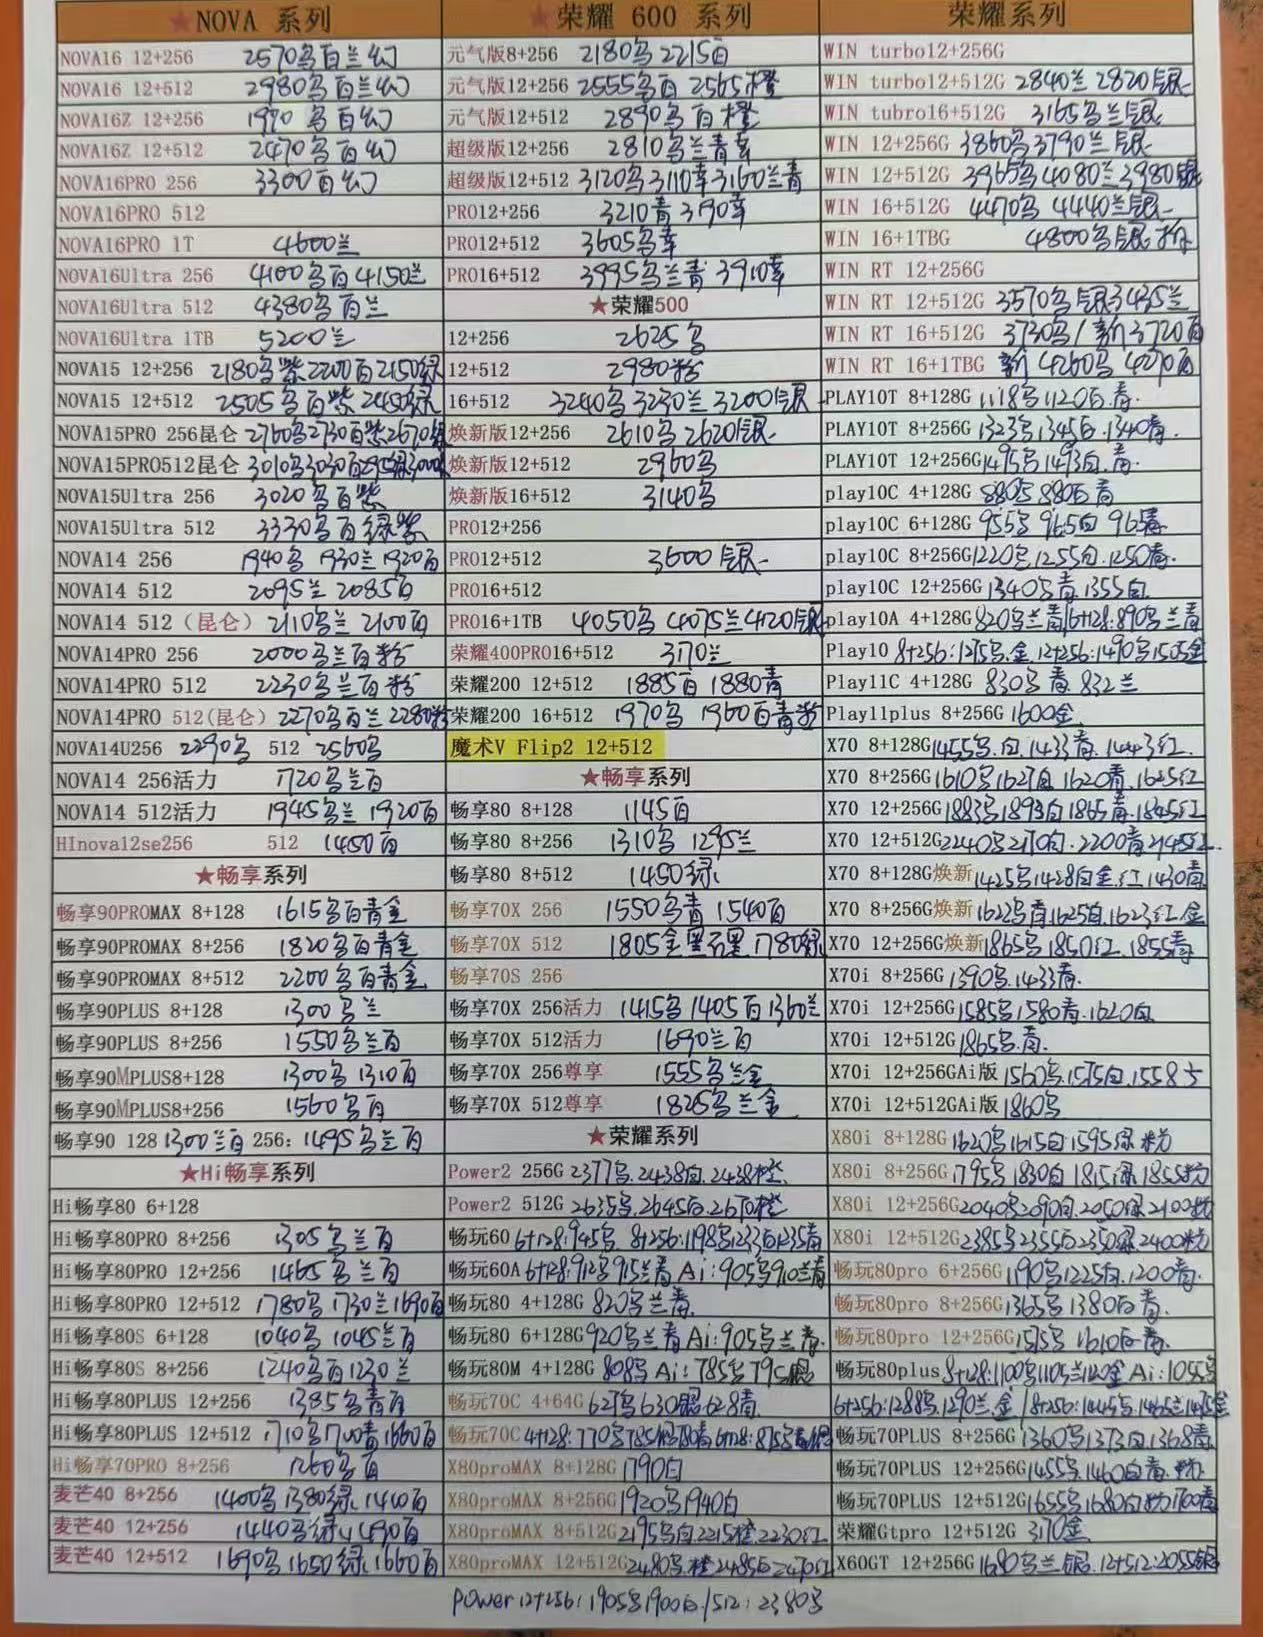 ★NOVA 系列
NOVA16 12+256 2570乌百兰幻
NOVA16 12+512 2980乌百兰幻
NOVA16Z 12+256 1970 乌百幻
NOVA16Z 12+512 2470乌百幻
NOVA16PRO 256 3300百幻
NOVA16PRO 512
NOVA16PRO 1T 4600兰
NOVA16Ultra 256 4100乌百4150兰
NOVA16Ultra 512 4380乌百兰
NOVA16Ultra 1TB 5200兰
NOVA15 12+256 2180乌紫2200百2150绿
NOVA15 12+512 2505乌百紫2450绿
NOVA15PRO 256昆仑 2760乌2730百紫2670绿
NOVA15PRO512昆仑 3010乌3030百
NOVA15Ultra 256 3020乌百紫
NOVA15Ultra 512 3330乌百绿紫
NOVA14 256 1940乌 1930兰1920百
NOVA14 512 2095兰 2085百
NOVA14 512（昆仑）2110乌兰 2100百
NOVA14PRO 256 2000乌兰百粉
NOVA14PRO 512 2230乌兰百粉
NOVA14PRO 512(昆仑) 2270乌百兰 2280粉
NOVA14U256 2290乌 512 2560乌
NOVA14 256活力 1720乌兰百
NOVA14 512活力 1945乌兰 1920百
HInova12se256 512 1450百
★畅享系列
畅享90PROMAX 8+128 1615乌百青金
畅享90PROMAX 8+256 1820乌百青金
畅享90PROMAX 8+512 2200乌百青金
畅享90PLUS 8+128 1300乌兰
畅享90PLUS 8+256 1550乌兰百
畅享90MPLUS8+128 1300乌 1310百
畅享90MPLUS8+256 1560乌百
畅享90 128 1300兰百 256: 1495乌兰百
★Hi畅享系列
Hi畅享80 6+128
Hi畅享80PRO 8+256 1305乌兰百
Hi畅享80PRO 12+256 1465乌兰百
Hi畅享80PRO 12+512 1780乌1730兰1690百
Hi畅享80S 6+128 1040乌 1045兰百
Hi畅享80S 8+256 1240乌百1230兰
Hi畅享80PLUS 12+256 1385乌青百
Hi畅享80PLUS 12+512 1710乌1700青1660百
Hi畅享70PRO 8+256 1260乌百
麦芒40 8+256 1400乌1380绿1410百
麦芒40 12+256 1440乌绿1490百
麦芒40 12+512 1690乌1650绿1660百
★荣耀 600 系列
元气版8+256 2180乌 2215百
元气版12+256 2555乌百 2565橙
元气版12+512 2890乌百橙
超级版12+256 2810乌兰青幸
超级版12+512 3120乌3110幸3160兰青
PRO12+256 3210青3190幸
PRO12+512 3605乌幸
PRO16+512 3995乌兰青 3910幸
★荣耀500
12+256 2625乌
12+512 2980粉
16+512 3240乌3230兰3200银
焕新版12+256 2610乌2620银
焕新版12+512 2960乌
焕新版16+512 3140乌
PRO12+256
PRO12+512 3600银
PRO16+512
PRO16+1TB 4050乌4075兰4120银
荣耀400PRO16+512 3170兰
荣耀200 12+512 1885百 1880青
荣耀200 16+512 1970乌 1960百青粉
魔术V Flip2 12+512
★畅享系列
畅享80 8+128 1145百
畅享80 8+256 1310乌 1295兰
畅享80 8+512 1450绿
畅享70X 256 1550乌青1540百
畅享70X 512 1805金黑石墨1780绿
畅享70S 256
畅享70X 256活力 1415乌1405百1360兰
畅享70X 512活力 1690兰百
畅享70X 256尊享 1555乌兰金
畅享70X 512尊享 1825乌兰金
★荣耀系列
Power2 256G 2377乌.2438白.2438橙.
Power2 512G 2635乌.2645白.2670橙
畅玩60 6+128:945乌. 8+256:1198乌1233白1235青
畅玩60A 6+128:912乌915兰青 Ai:905乌910兰青
畅玩80 4+128G 820乌兰青.
畅玩80 6+128G920乌兰青 Ai:905乌兰青.
畅玩80M 4+128G 808乌 Ai: 785乌795银
畅玩70C 4+64G 627乌630银628青.
畅玩70C 4+128:770乌785银780青
X80proMAX 8+128G 1790白
X80proMAX 8+256G1920乌1940白
X80proMAX 8+512G2195乌白2215橙2230红
X80proMAX 12+512G2480乌.橙2485白2470红
荣耀系列
WIN turbo12+256G
WIN turbo12+512G 2840兰 2820银
WIN tubro16+512G 3165乌兰银
WIN 12+256G 3860乌3790兰银
WIN 12+512G 3965乌4080兰3980银
WIN 16+512G 4470乌 4440兰银
WIN 16+1TBG 4800乌银
WIN RT 12+256G
WIN RT 12+512G 3570乌银3435兰
WIN RT 16+512G 3730乌/新3720百
WIN RT 16+1TBG 新4260乌 4270百
PLAY10T 8+128G 1118乌1120百.青.
PLAY10T 8+256G 1323乌.1345白.1340青.
PLAY10T 12+256G1495乌1493白.青.
play10C 4+128G 880百青
play10C 6+128G 955乌 965白 965青
play10C 8+256G1220乌.1255白.1250青.
play10C 12+256G1340乌青1355白
play10A 4+128G820乌兰青/6+128:890乌兰青
Play10 8+256:1275乌.金.12+256:1490乌1505金
Play11C 4+128G 830乌青.832兰
Play11plus 8+256G 1600金
X70 8+128G1455乌.白.1433青.1443红.
X70 8+256G1610乌1627白.1620青.1625红
X70 12+256G1883乌1893白1865青.1845红
X70 12+512G2240乌2170白.2200青2145红
X70 8+128G焕新1425乌1428白金.红1430青
X70 8+256G焕新1623乌青1625白.1623红.金
X70 12+256G焕新1865乌1850红.1855青
X70i 8+256G1390乌.1433青.
X70i 12+256G1585乌1580青.1620白
X70i 12+512G1865乌.青.
X70i 12+256GAi版1560乌.1575白.1558
X70i 12+512GAi版1860乌
X80i 8+128G1620乌1615白1595绿粉
X80i 8+256G1795乌1830白1815绿1855粉
X80i 12+256G2040乌2090白.2050绿2100粉
X80i 12+512G2385乌2355白2350绿2400粉
畅玩80pro 6+256G1190乌1225白.1200青.
畅玩80pro 8+256G1365乌1380百青.
畅玩80pro 12+256G1575乌 1610白青.
畅玩80plus8+128:1100乌1105兰1120金 Ai:1055乌
6+256:1288乌.1290兰.金/8+256:1445乌.1465兰1475金
畅玩70PLUS 8+256G1360乌1373白1368青
畅玩70PLUS 12+256G1455乌.1460白青.粉
畅玩70PLUS 12+512G1655乌1680白粉1700青
荣耀Gtpro 12+512G 3170金
X60GT 12+256G1680乌兰银.12+512:2055银
Power12+256:1905乌1900白/512:2380乌